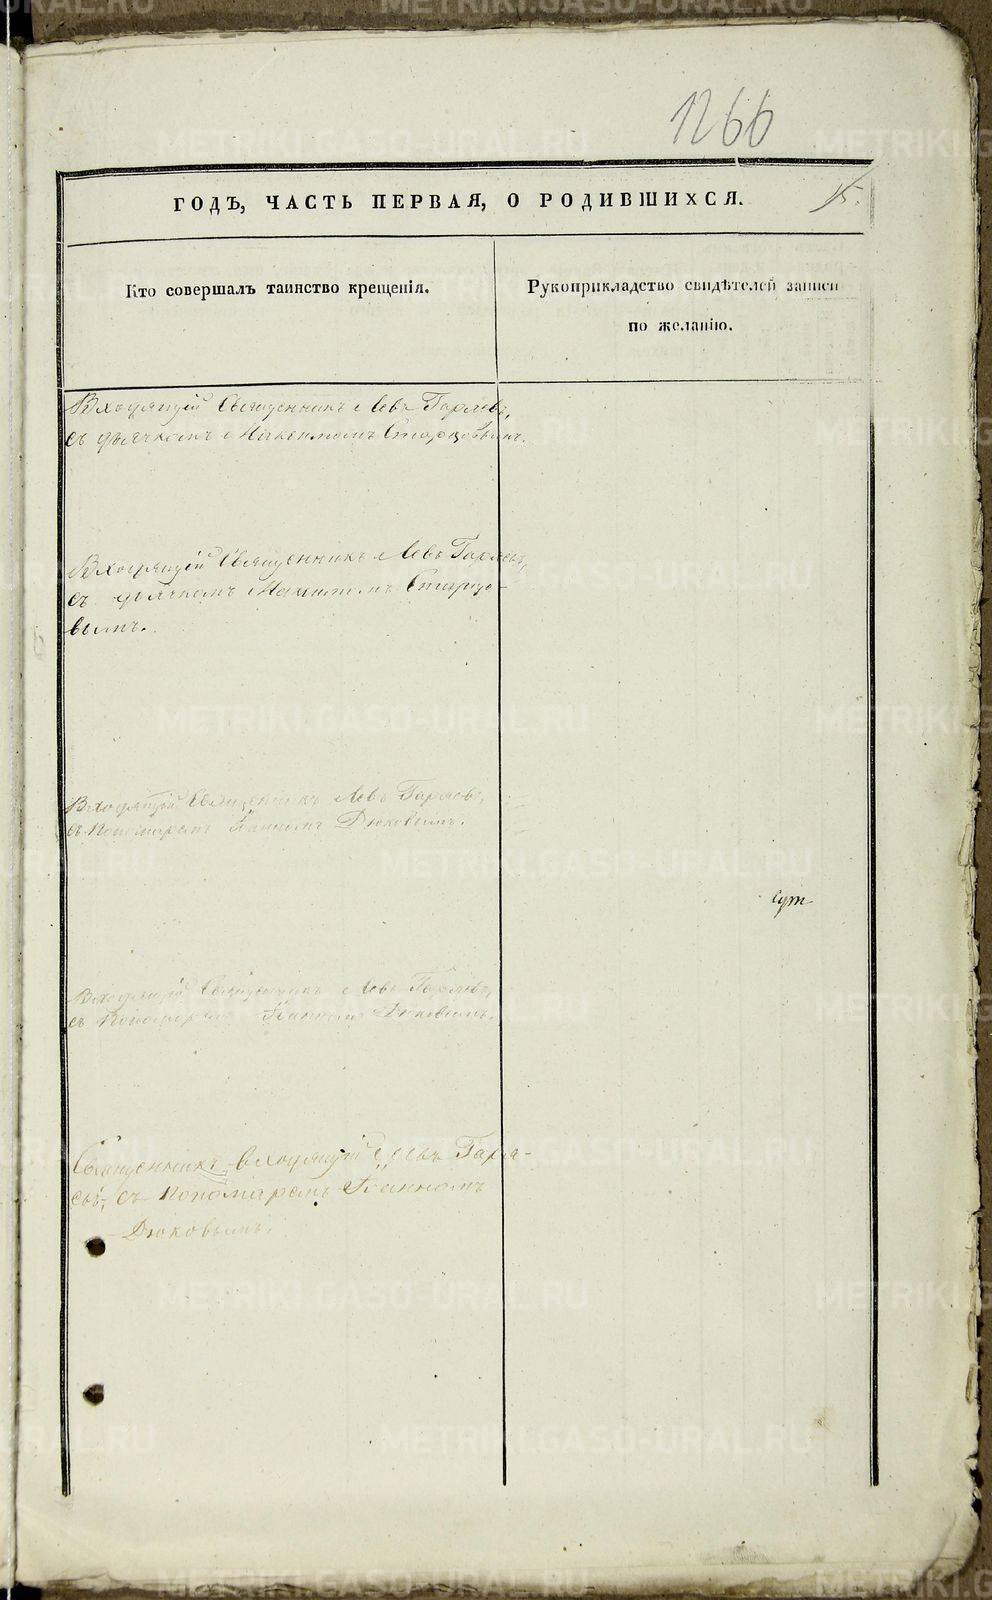 1266
ГОДЪ, ЧАСТЬ ПЕРВАЯ, О РОДИВШИХСЯ.
15.
Кто совершалъ таинство крещенія.
Рукоприкладство свидѣтелей записи
по желанію.
Входящій Священникъ Левъ Гаряевъ,
съ дьячкомъ Максимомъ Старцовымъ.
Входящій Священникъ Левъ Гаряевъ,
съ дьячкомъ Максимомъ Старцо-
вымъ.
Входящій Священникъ Левъ Гаряевъ,
съ Пономаремъ Іоанномъ Дюковымъ.
сут
Входящій Священникъ Левъ Гаряевъ,
съ Пономаремъ Іоанномъ Дюковымъ.
Священникъ входящій Левъ Гаря-
евъ, съ Пономаремъ Іоанномъ
Дюковымъ.
METRIKI.GASO-URAL.RU